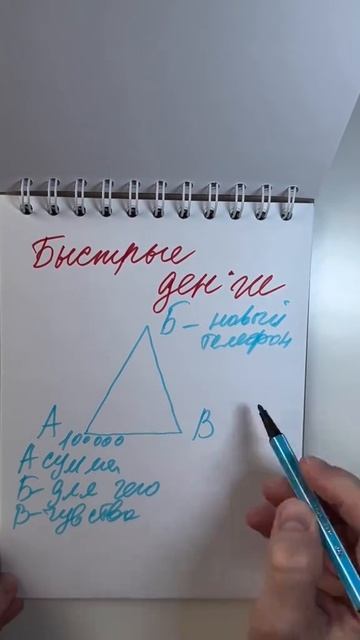 Быстрые
ден·ги
Б - новый
телефон
А
В
100000
А сумма
Б - для чего
В - чувства